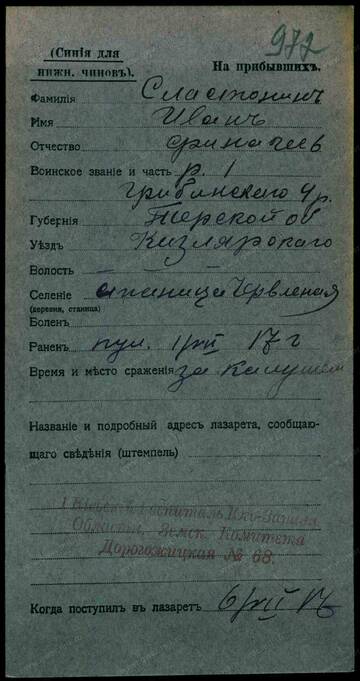 972
(Синія для
нижн. чиновъ).
На прибывшихъ.
Фамилія Сластонинъ
Имя Иванъ
Отчество
Воинское званіе и часть р. 1
Губернія Терской об
Уѣздъ Кизлярскаго
Волость
Селеніе станица Червленая
(деревня, станица)
Боленъ
Раненъ пул. 1/VII 17 г
Время и мѣсто сраженія за Калушем
Названіе и подробный адресъ лазарета, сообщаю-
щаго свѣдѣнія (штемпель)
1 Кіевскій Госпиталь Юго-Запад.
Области, Земск. Комитета
Дорогожицкая № 68.
Когда поступилъ въ лазаретъ 6/VII 17